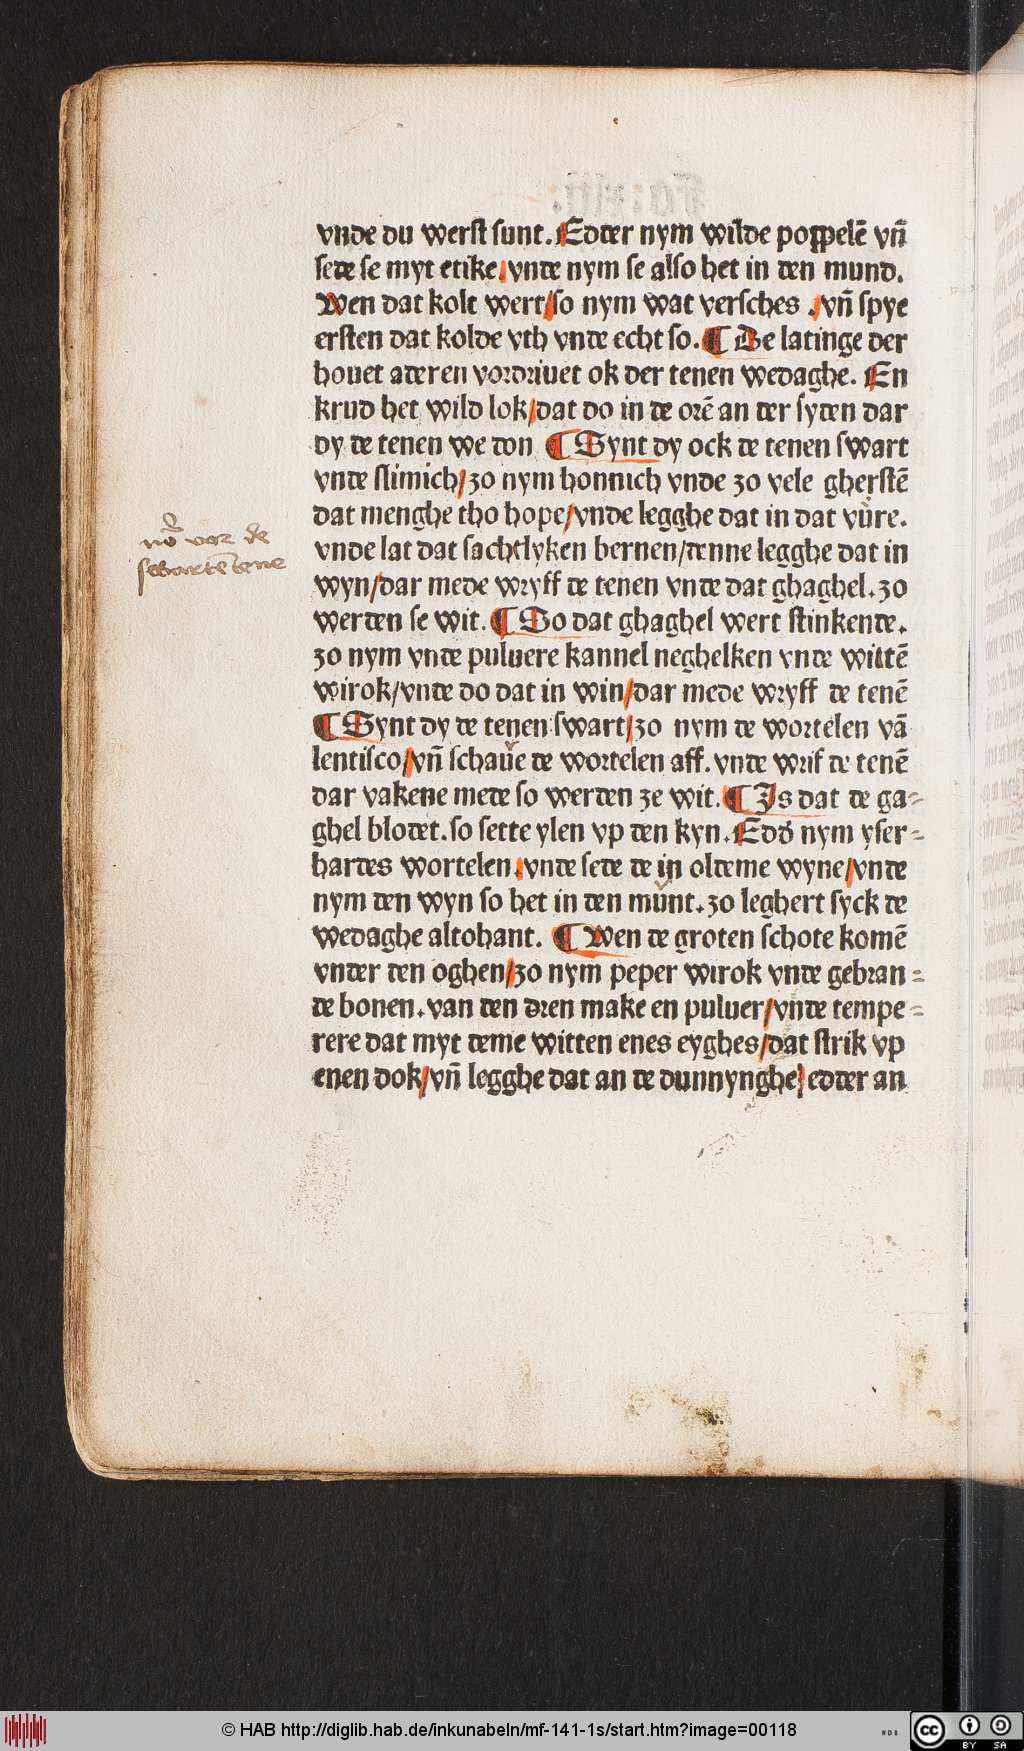 vnde du werst sunt. Edder nym wilde poppelē vn̄
sede se myt etike/vnde nym se also het in den mund.
Wen dat kolt wert/so nym wat versches ./vn̄ spye
ersten dat kolde vth vnde echt so. ¶ De latinge der
houet aderen vordriuet ok der tenen wedaghe. En
krud het wild lok/dat do in de orē an der syden dar
dy de tenen we don ¶ Synt dy ock de tenen swart
vnde slimich/zo nym honnich vnde zo vele gherstē
dat menghe tho hope/vnde legghe dat in dat vůre.
vnde lat dat sachtlyken bernen/denne legghe dat in
wyn/dar mede wryff de tenen vnde dat ghaghel. zo
werden se wit. ¶ So dat ghaghel wert stinkende.
zo nym vnde puluere kannel neghelken vnde wittē
wirok/vnde do dat in win/dar mede wryff de tenē
¶ Synt dy de tenen swart/zo nym de wortelen vā
lentisco/vn̄ schaue de wortelen aff. vnde wrif de tenē
dar vakene mede so werden ze wit. ¶ Is dat de ga-
ghel blodet. so sette ylen vp den kyn. Edď nym yser-
hartes wortelen/vnde sede de in oldeme wyne/vnde
nym den wyn so het in den munt. zo leghert syck de
wedaghe altohant. ¶ Wen de groten schote komē
vnder den oghen/zo nym peper wirok vnde gebran-
de bonen. van den dren make en puluer/vnde tempe-
rere dat myt deme witten enes eyghes/dat strik vp
enen dok/vn̄ legghe dat an de dunnynghe/edder an
no vor de
swarte tene
© HAB http://diglib.hab.de/inkunabeln/mf-141-1s/start.htm?image=00118
cc BY SA